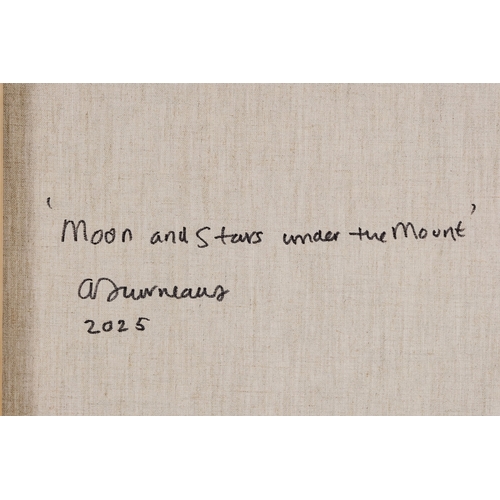 'Moon and Stars under the Mount'
2025